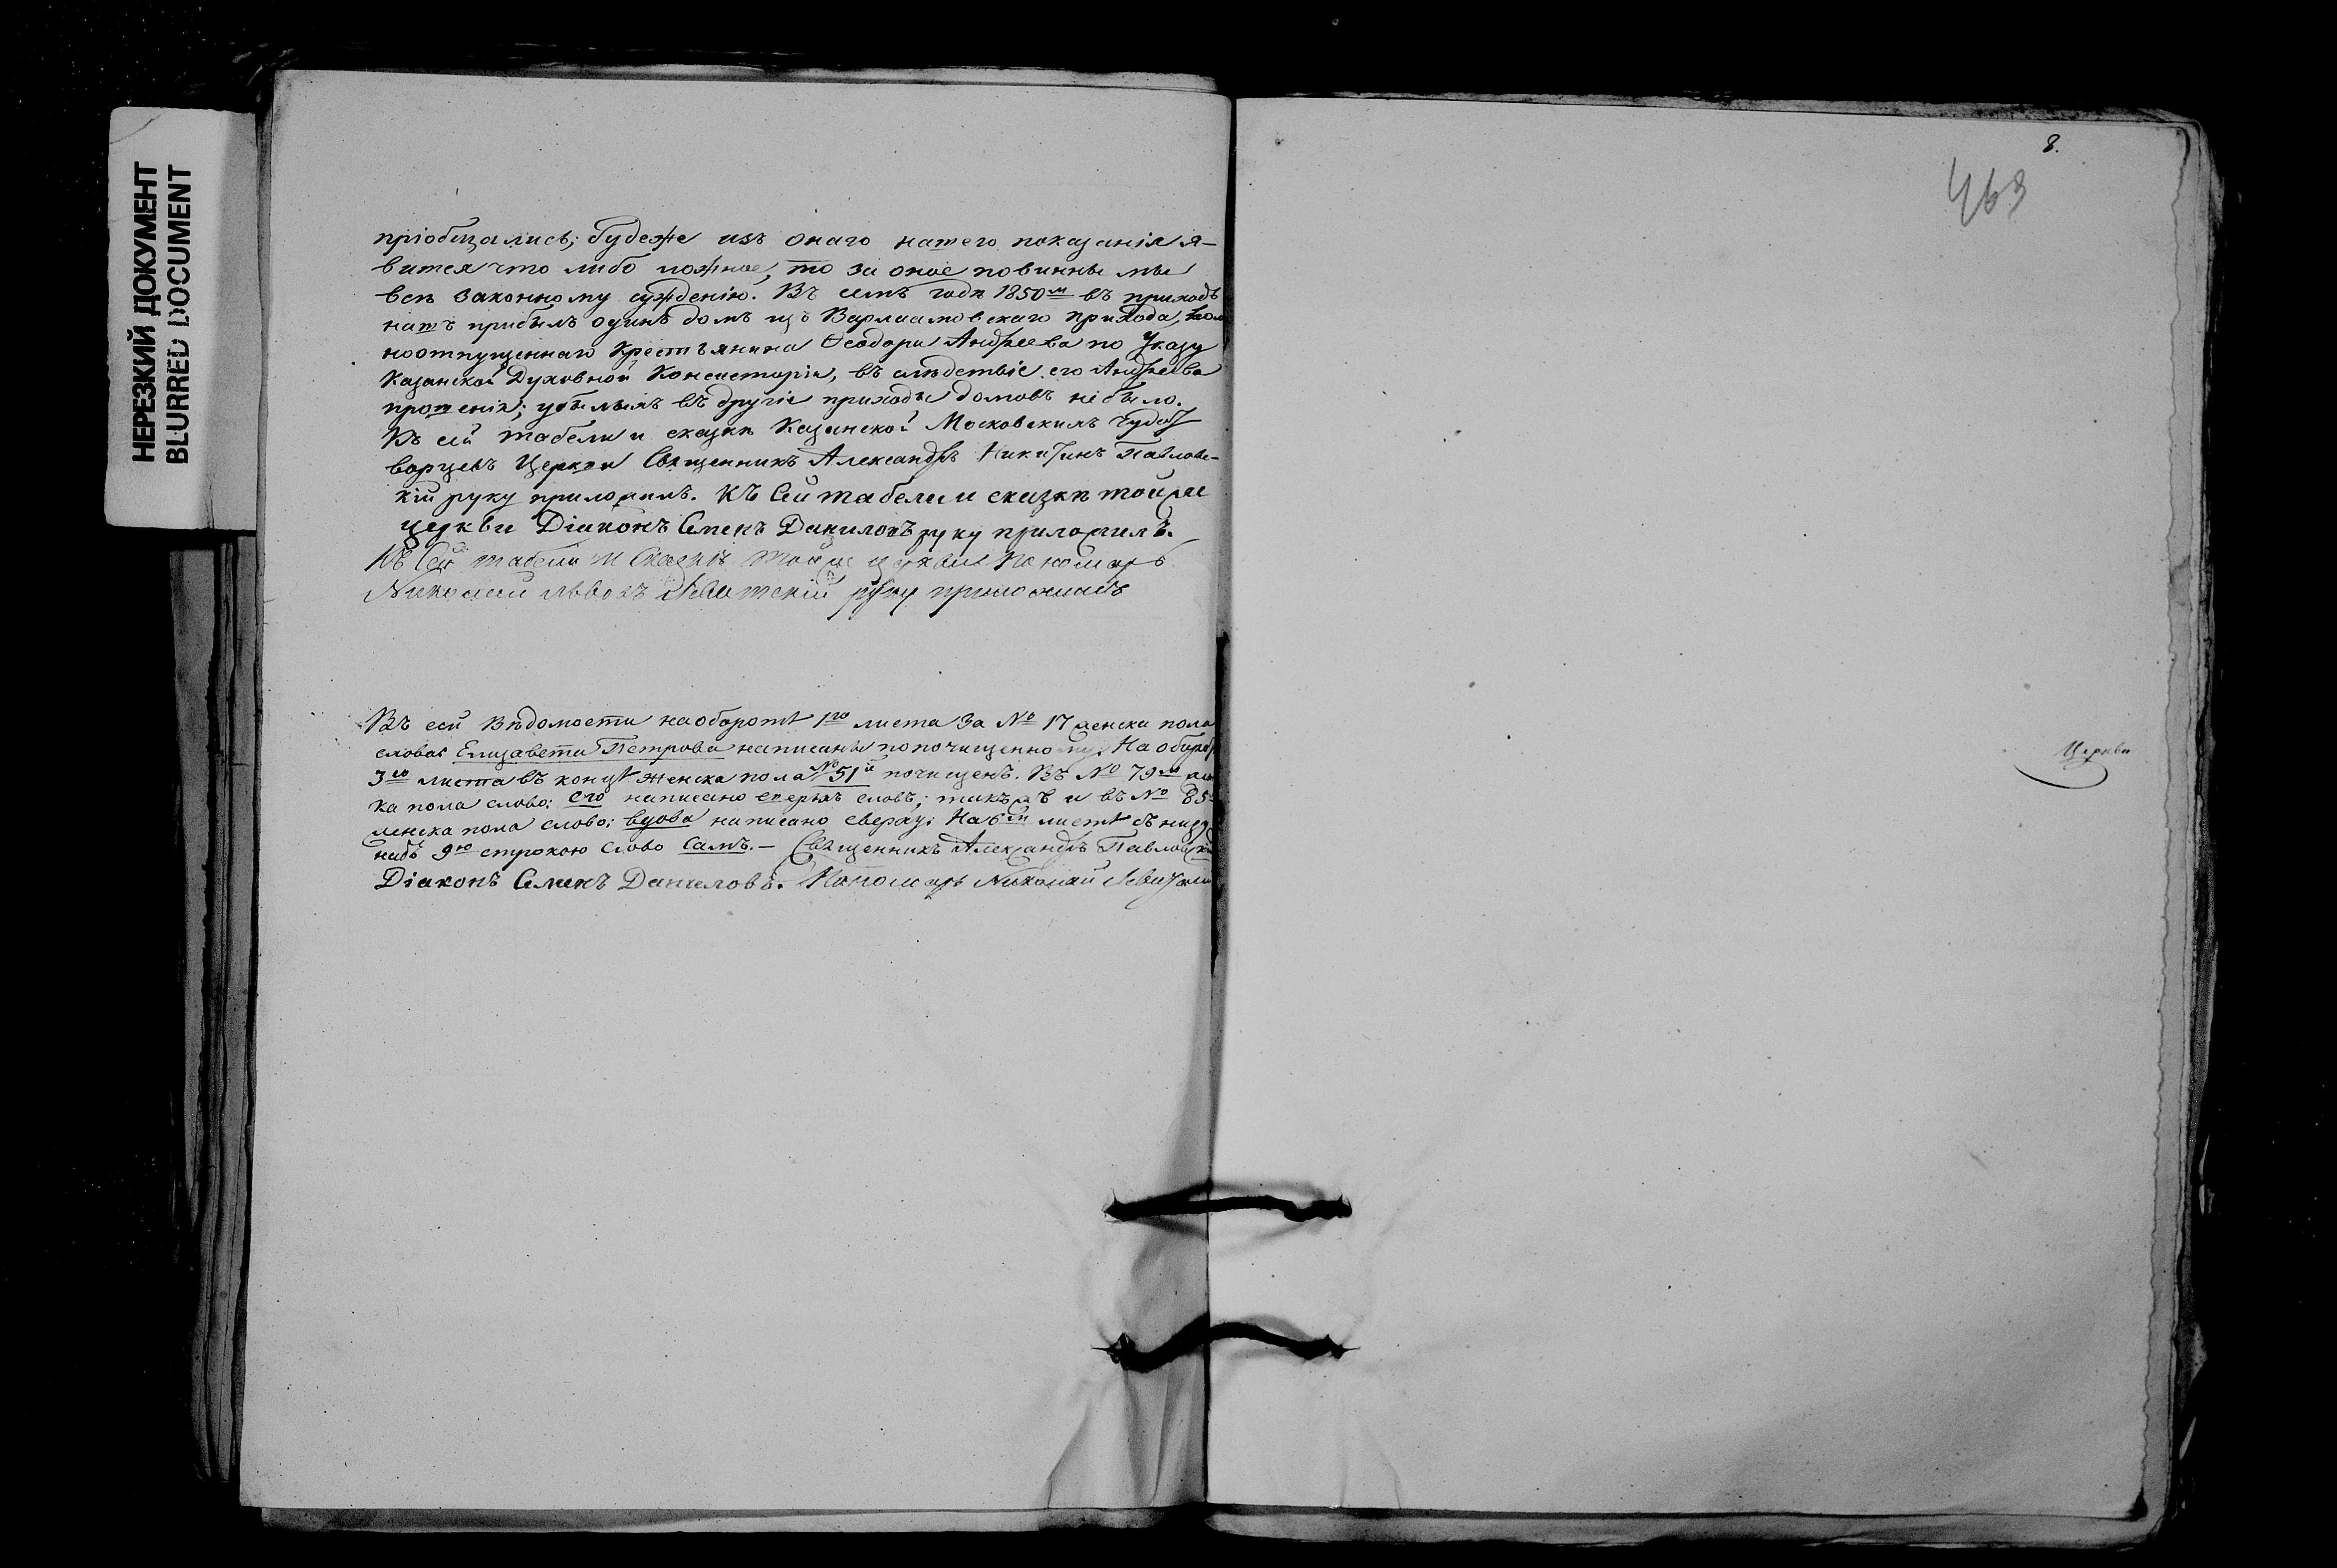 НЕРЕЗКИЙ ДОКУМЕНТ
BLURRED DOCUMENT
пріобщались; будеже изъ онаго нашего показанія я-
вится что либо ложное, то за оное повинны мы
всѣ законному сужденію. Въ семъ годѣ 1850м въ приходъ
нашъ прибылъ одинъ домъ изъ Варлаамовскаго прихода, вол
ноотпущеннаго Крестьянина Ѳеодора Андреева по Указу
Казанской Духовной Консисторіи, въ слѣдствіе его Андреева
прошенія; убылыхъ въ другіе приходы домовъ небыло.
Къ сей табели и сказкѣ Казанской Московскихъ Чудот
ворцевъ Церкви Священникъ Александръ Никитинъ Павловс-
кій руку приложилъ. Къ Сей табели и сказкѣ тойже
церкви Діаконъ Семенъ Даниловъ руку приложилъ.
Къ Сей табели И Сказкѣ Тойже церкви Пономарь
Николай Львовъ Левитскій руку приложилъ
Въ сей вѣдомости на оборотѣ 1го листа За № 17 женска пола
слова: Елизавета Петрова написаны попочищенному. На оборо
3го листа въ концѣ женска пола № 51й почищенъ. Въ № 79м
ка пола слово: его написано сверхъ словъ; такъжъ и въ № 85
женска пола слово: вдова написано сверху; На 6м листѣ съ низу
надъ 9ю строкою Слово Самъ. — Священникъ Александръ Павловск
Діаконъ Семенъ Даниловъ. Пономарь Николай Левитск
8.
463
Церкви